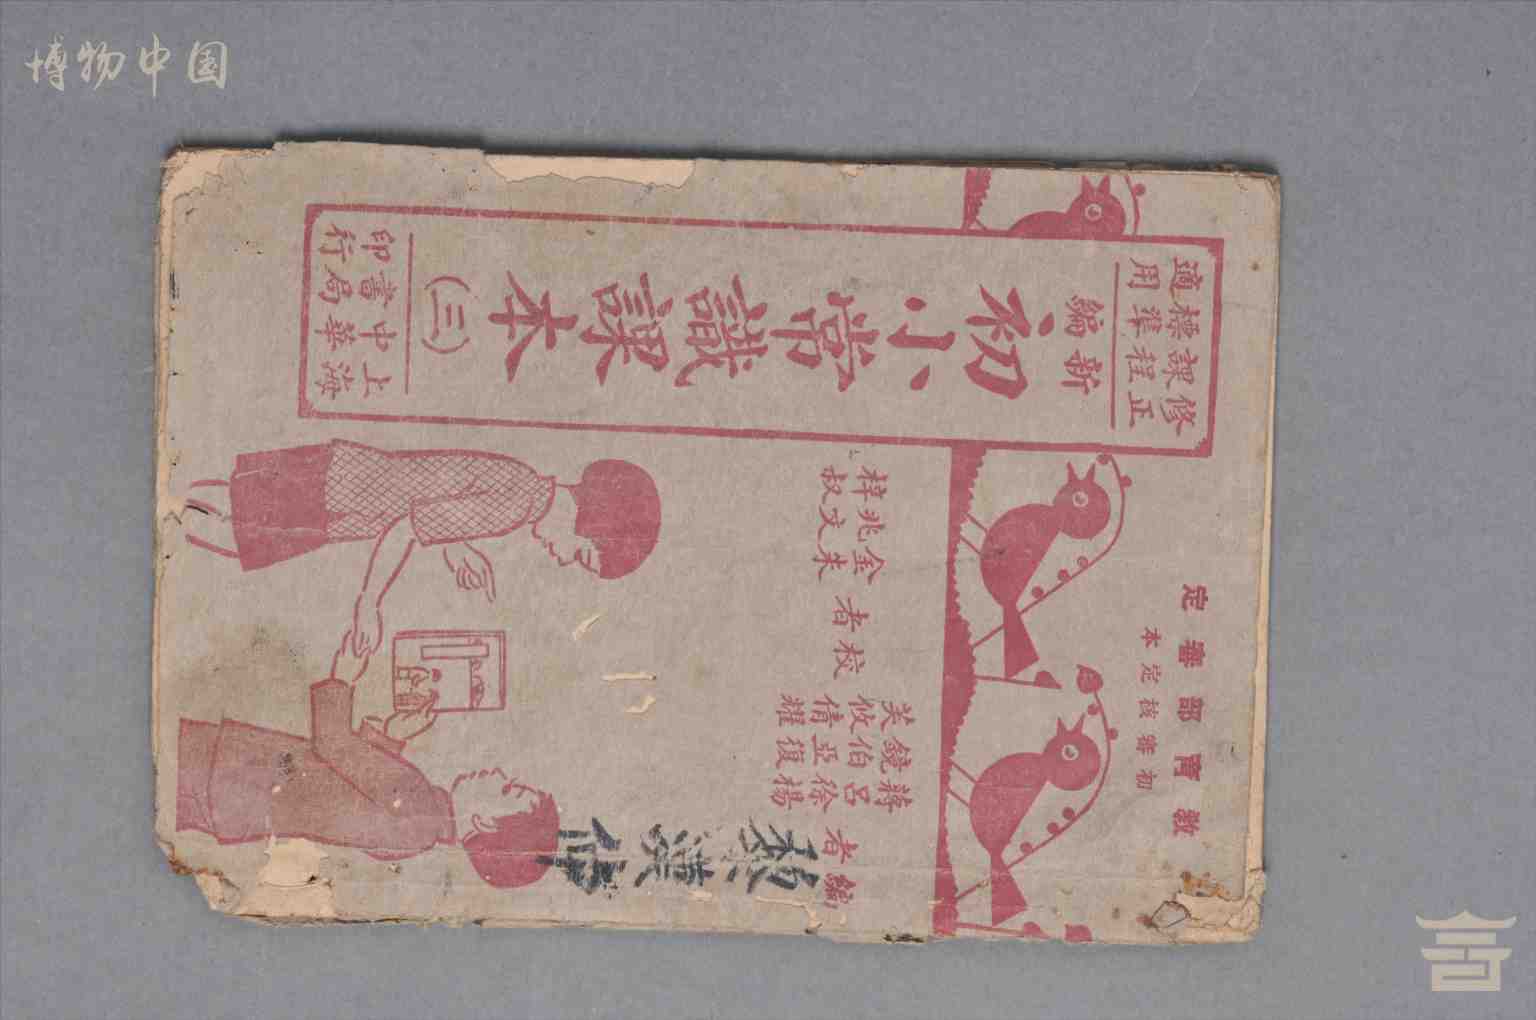 博物中国
教育部審定
初審核定本
修正課程標準適用
新編
初小常識課本
(三)
上海中華書局印行
編者
蔣鏡芙
呂伯攸
徐亞倩
楊復耀
校者
金兆梓
朱文叔